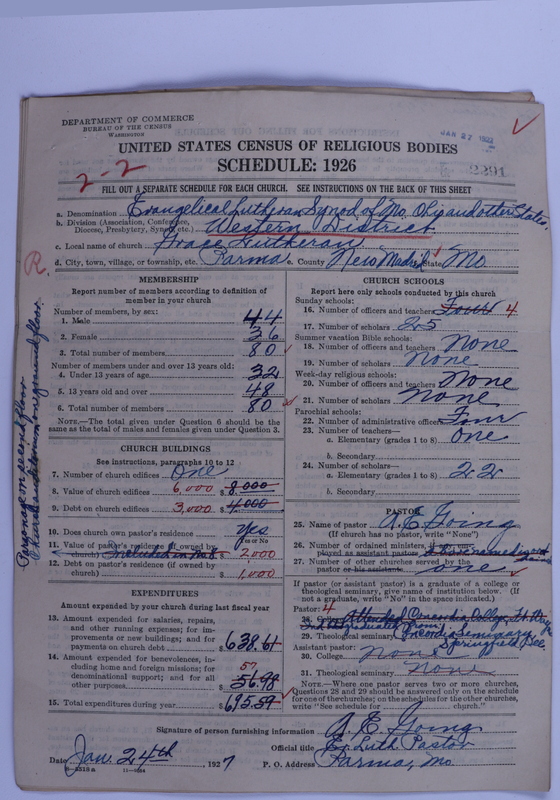 DEPARTMENT OF COMMERCE
BUREAU OF THE CENSUS
WASHINGTON
JAN 27
UNITED STATES CENSUS OF RELIGIOUS BODIES
SCHEDULE: 1926
2-2
2291
FILL OUT A SEPARATE SCHEDULE FOR EACH CHURCH. SEE INSTRUCTIONS ON THE BACK OF THIS SHEET
a. Denomination Evangelical Lutheran Synod of Mo. Ohio and other States,
b. Division (Association, Conference, Diocese, Presbytery, Synod, etc.) Western District
c. Local name of church Grace Lutheran
d. City, town, village, or township, etc. Parma e. County New Madrid State Mo.
R
Parsonage on second floor
Church on ground floor.
MEMBERSHIP
Report number of members according to definition of member in your church
Number of members, by sex:
1. Male 44
2. Female 36
3. Total number of members 80
Number of members under and over 13 years old:
4. Under 13 years of age 32
5. 13 years old and over 48
6. Total number of members 80
NOTE.—The total given under Question 6 should be the same as the total of males and females given under Question 3.
CHURCH BUILDINGS
See instructions, paragraphs 10 to 12
7. Number of church edifices One
8. Value of church edifices 6,000 $ 8,000
9. Debt on church edifices 3,000 $ 4,000
10. Does church own pastor's residence? Yes
Yes or No
11. Value of pastor's residence (if owned by church) Included in No. 8 $ 2,000
12. Debt on pastor's residence (if owned by church) $ 1,000
EXPENDITURES
Amount expended by your church during last fiscal year
13. Amount expended for salaries, repairs, and other running expenses; for improvements or new buildings; and for payments on church debt $ 638.61
14. Amount expended for benevolences, including home and foreign missions; for denominational support; and for all other purposes 57 $ 56.98
15. Total expenditures during year $ 695.59
CHURCH SCHOOLS
Report here only schools conducted by this church
Sunday schools:
16. Number of officers and teachers Four 4
17. Number of scholars 25
Summer vacation Bible schools:
18. Number of officers and teachers None
19. Number of scholars None
Week-day religious schools:
20. Number of officers and teachers None
21. Number of scholars None
Parochial schools:
22. Number of administrative officers Four
23. Number of teachers—
a. Elementary (grades 1 to 8) One
b. Secondary
24. Number of scholars—
a. Elementary (grades 1 to 8) 22
b. Secondary
PASTOR
25. Name of pastor A. E. Going
(If church has no pastor, write "None")
26. Number of ordained ministers, if any, employed as assistant pastor
27. Number of other churches served by the pastor or his assistants one
If pastor (or assistant pastor) is a graduate of a college or theological seminary, give name of institution below. (If not a graduate, write "No" in the space indicated.)
Pastor: 4
28. College Attended Concordia College, St. Paul
29. Theological seminary Concordia Seminary, Springfield
Assistant pastor:
30. College None
31. Theological seminary None
NOTE.—Where one pastor serves two or more churches, Questions 28 and 29 should be answered only on the schedule for one of the churches; on the schedules for the other churches, write "See schedule for church."
Signature of person furnishing information A. E. Going
Official title Ev. Luth Pastor
Date Jan. 24th, 1927 P. O. Address Parma, Mo.